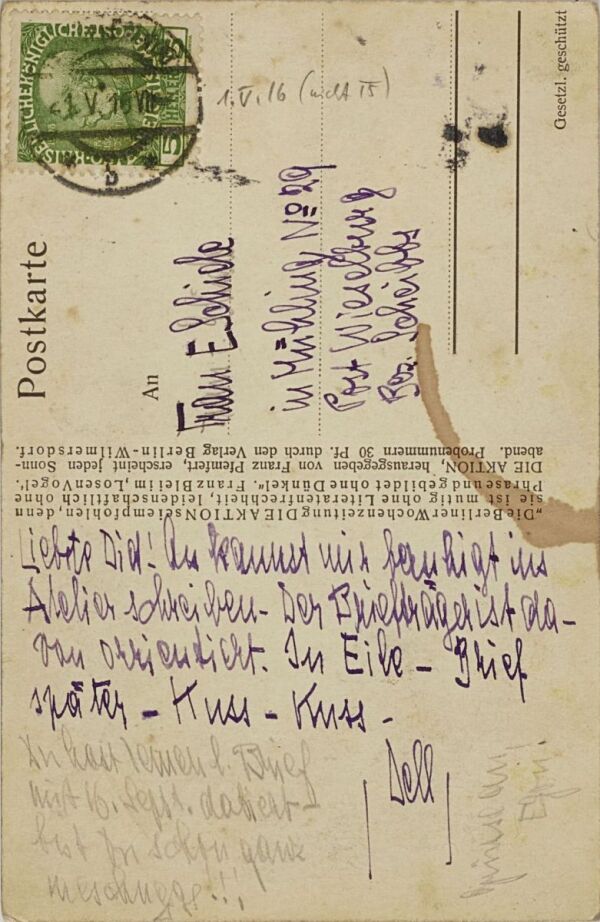 Postkarte
An
Frau E Schiele
in Mühling No 29
Post Wieselburg
Bez. Scheibbs
Gesetzl. geschützt
1. V. 16 (nicht 15)
5
„Die Berliner Wochenzeitung DIE AKTION sei empfohlen, denn
sie ist mutig ohne Literatenfrechheit, leidenschaftlich ohne
Phrase und gebildet ohne Dünkel“. Franz Blei im „Losen Vogel“.
DIE AKTION, herausgegeben von Franz Pfemfert, erscheint jeden Sonn-
abend. Probenummern 30 Pf. durch den Verlag Berlin-Wilmersdorf.
Liebste Did! Du kannst mir beruhigt ins
Atelier schreiben - Der Briefträger ist da-
von orientiert. In Eile - Brief
später - Kuss - Kuss -
Du hast
l. Brief
mit 16. Sept. datiert -
bist Du schon ganz
meschugge!!!